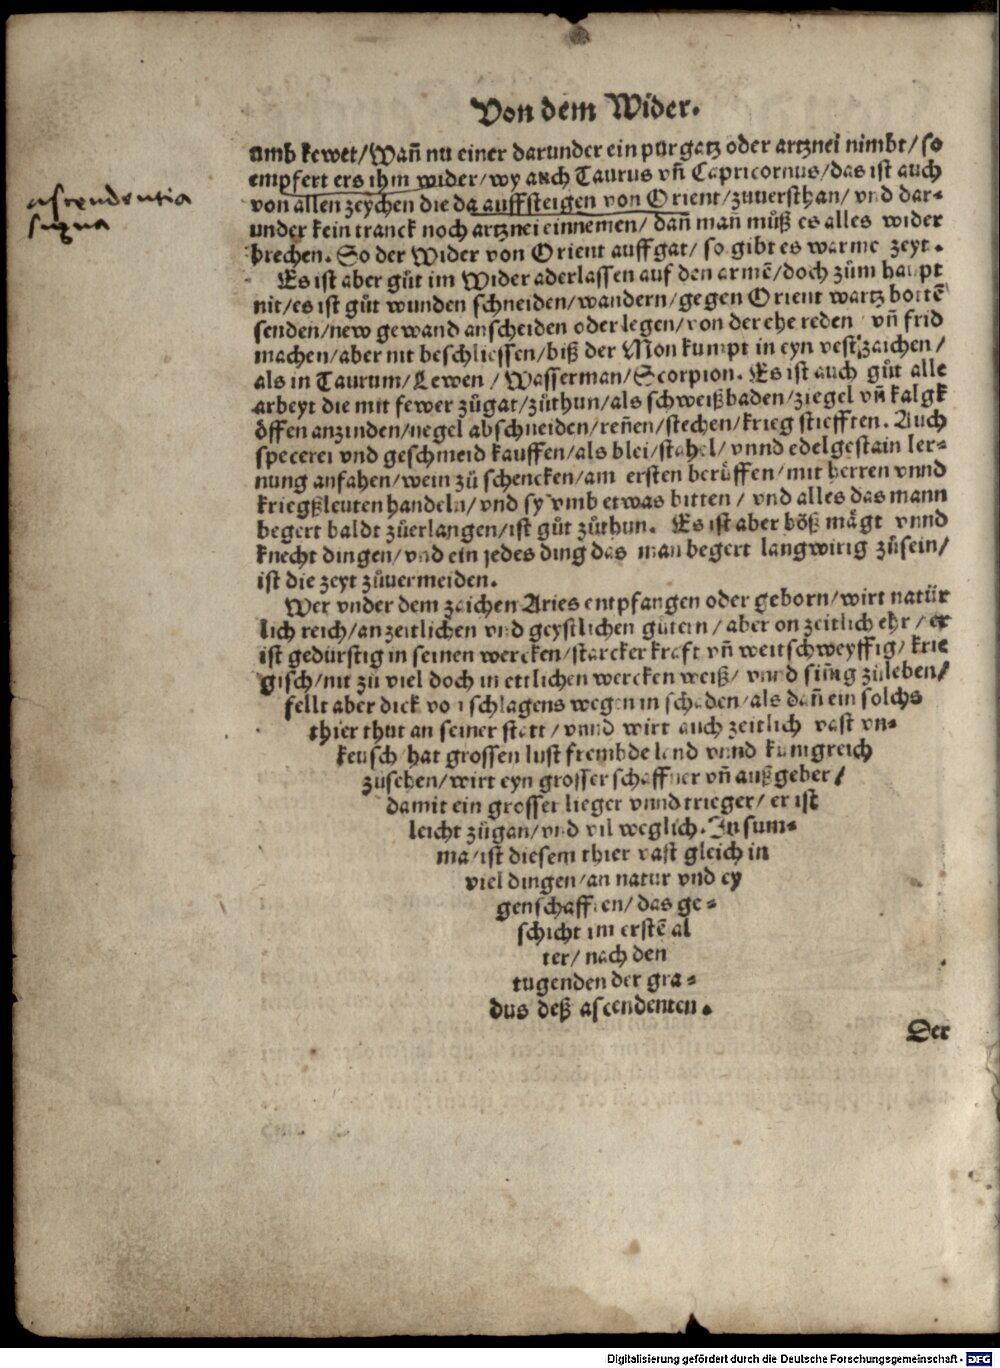 Von dem Wider.
umb kewet/Wañ nu einer darunder ein purgatz oder artznei nimbt/so
empfert ers ihm wider/wy auch Taurus vñ Capricornus/das ist auch
von allen zeychen die da auffsteigen von Orient/zuuersthan/ vnd dar-
under kein tranck noch artznei einnemen/ dañ mañ můß es alles wider
brechen. So der Wider von Orient auffgat/ so gibt es warme zeyt.
ascendentia
signa
Es ist aber gůt im Wider aderlassen auf den armẽ/doch zům haupt
nit/es ist gůt wunden schneiden/wandern/gegen Orient wartz bottẽ
senden/new gewand anscheiden oder legen/von der ehe reden vñ frid
machen/aber nit beschliessen/biß der Mon kumpt in eyn vest zaichen/
als in Taurum/Lewen/Wasserman/Scorpion. Es ist auch gůt alle
arbeyt die mit fewer zůgat/zůthun/als schweißbaden/ziegel vñ kalgk
öffen anzinden/negel abschneiden/reñen/stechen/krieg stifften. Auch
specerei vnd geschmeid kauffen/als blei/stahel/vnnd edelgestain ler-
nung anfahen/wein zů schencken/am ersten berůffen/mit herren vnnd
kriegßleuten handeln/vnd sy vmb etwas bitten/ vnd alles das mann
begert baldt zůerlangen/ist gůt zůthun. Es ist aber böß mägt vnnd
knecht dingen/vnd ein jedes ding das man begert langwirig zůsein/
ist die zeyt zůuermeiden.
Wer vnder dem zaichen Aries entpfangen oder geborn/wirt natür
lich reich/an zeitlichen vnd geystlichen gütern/aber on zeitlich ehr/er
ist gedürstig in seinen wercken/starcker kraft vñ weitschweyffig/krie
gisch/nit zů viel doch in ettlichen wercken weiß/ vnnd siñig zůleben/
fellt aber dick von schlagens wegen in schaden/als dañ ein solchs
thier thut an seiner statt/vnnd wirt auch zeitlich vast vn-
keusch/hat grossen lust frembde land vnnd künigreich
zůsehen/wirt eyn grosser schaffner vñ außgeber/
damit ein grosser lieger vnnd trieger/er ist
leicht zůgan/vnd vil weglich. In sum-
ma/ist diesem thier vast gleich in
viel dingen/an natur vnd ey
genschafften/das ge-
schicht im erstẽ al
ter/nach den
tugenden der gra-
dus deß ascendenten.
Der
Digitalisierung gefördert durch die Deutsche Forschungsgemeinschaft - DFG